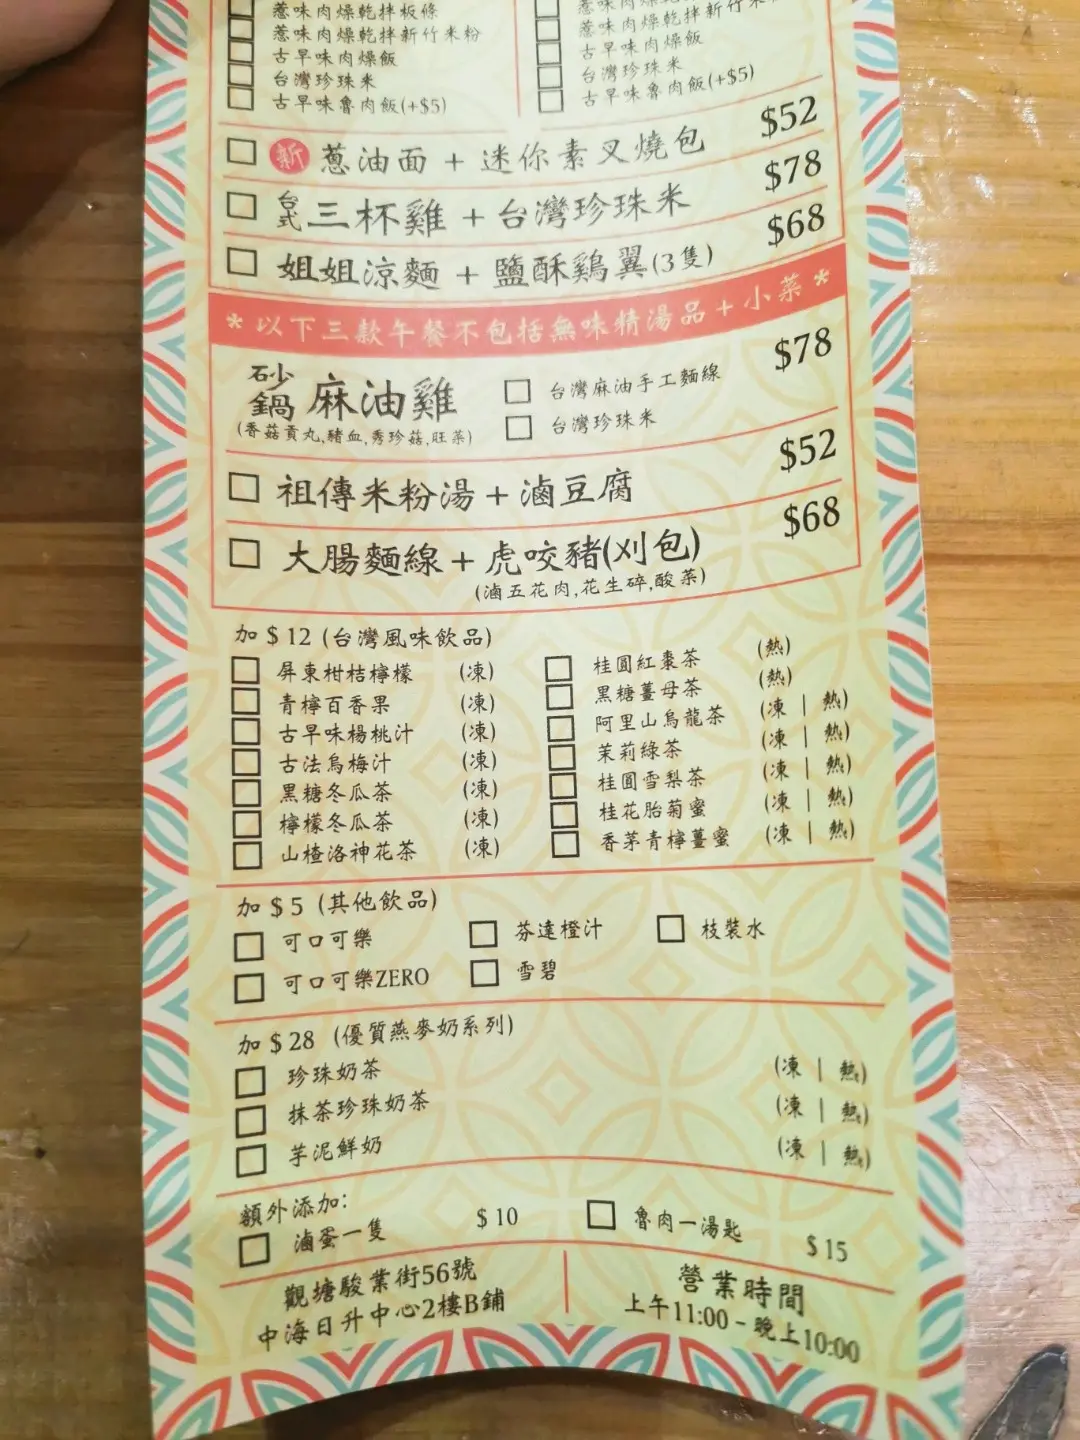 惹味肉燥乾拌板條
惹味肉燥乾拌新竹米粉
古早味肉燥飯
台灣珍珠米
古早味魯肉飯(+$5)
惹味肉燥乾拌新竹米
古早味肉燥飯
台灣珍珠米
古早味魯肉飯(+$5)
新 蔥油面 + 迷你素叉燒包 $52
台式 三杯雞 + 台灣珍珠米 $78
姐姐涼麵 + 鹽酥鷄翼(3隻) $68
* 以下三款午餐不包括無味精湯品 + 小菜 *
砂鍋 麻油雞 $78
(香菇貢丸,豬血,秀珍菇,旺菜)
台灣麻油手工麵線
台灣珍珠米
祖傳米粉湯 + 滷豆腐 $52
大腸麵線 + 虎咬豬(刈包) $68
(滷五花肉,花生碎,酸菜)
加 $ 12 (台灣風味飲品)
屏東柑桔檸檬 (凍)
青檸百香果 (凍)
古早味楊桃汁 (凍)
古法烏梅汁 (凍)
黑糖冬瓜茶 (凍)
檸檬冬瓜茶 (凍)
山楂洛神花茶 (凍)
桂圓紅棗茶 (熱)
黑糖薑母茶 (熱)
阿里山烏龍茶 (凍 | 熱)
茉莉綠茶 (凍 | 熱)
桂圓雪梨茶 (凍 | 熱)
桂花胎菊蜜 (凍 | 熱)
香茅青檸薑蜜 (凍 | 熱)
加 $ 5 (其他飲品)
可口可樂
芬達橙汁
枝裝水
可口可樂ZERO
雪碧
加 $ 28 (優質燕麥奶系列)
珍珠奶茶 (凍 | 熱)
抹茶珍珠奶茶 (凍 | 熱)
芋泥鮮奶 (凍 | 熱)
額外添加:
滷蛋一隻 $ 10
魯肉一湯匙 $ 15
觀塘駿業街56號
中海日升中心2樓B鋪
營業時間
上午11:00 - 晚上10:00